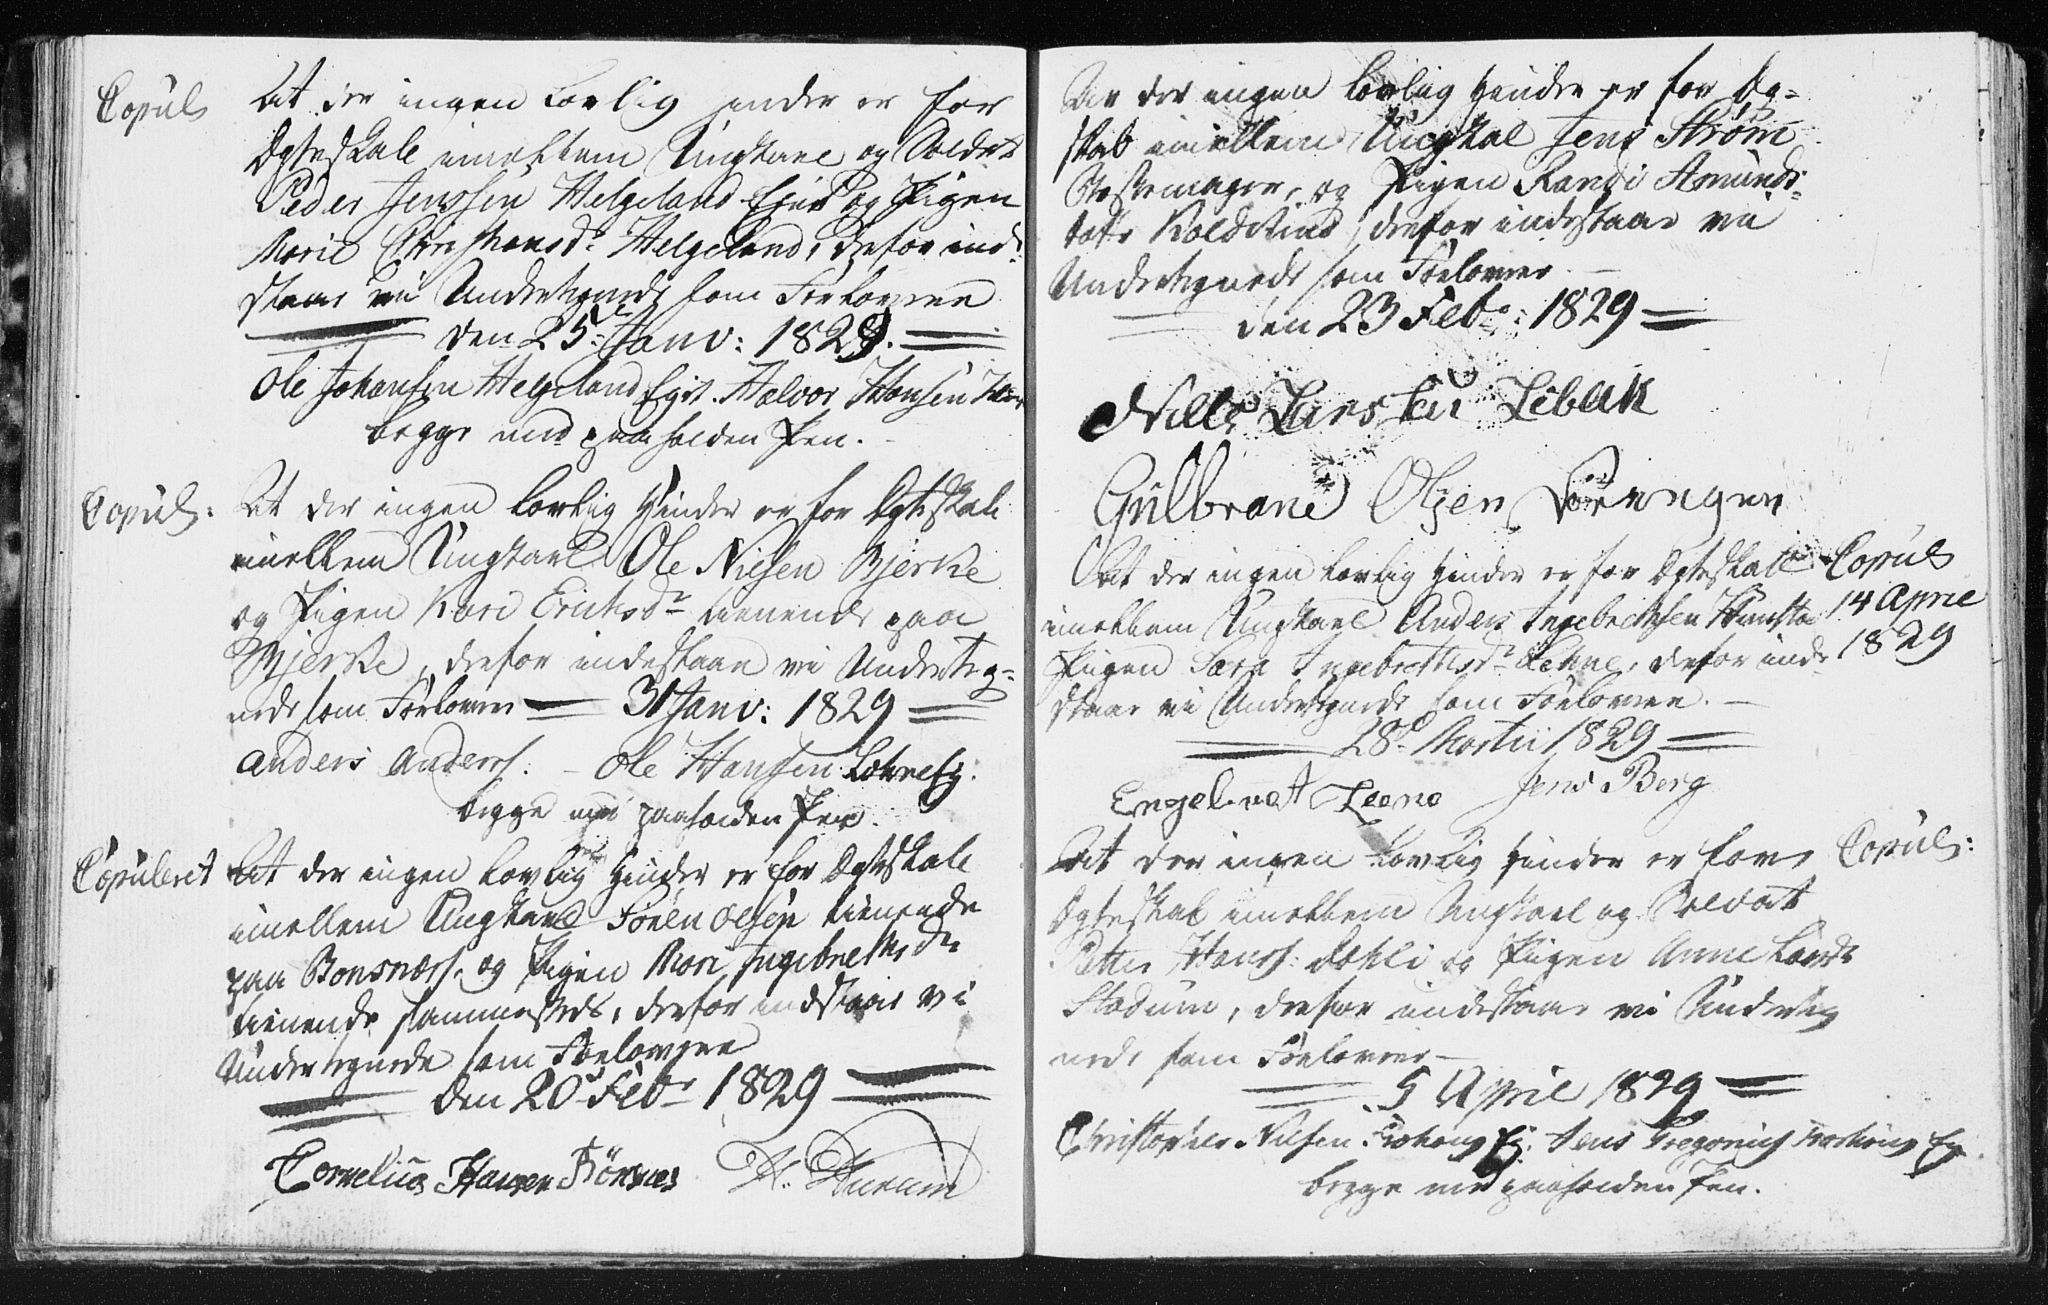 Copul:
At der ingen Lovlig Hinder er for
Egteskab imellem Ungkarl og Soldat
Peder Jenssen Helgeland Eier og Pigen
Marie Christiansd:r Helgeland, derfor inde
staar vi Undertegnede som Forlovere
den 25. Janv: 1829.
Ole Johansen Helgeland Eyer. Halvor Hansen
begge med paaholden Pen.
Copul:
At der ingen Lovlig Hinder er for Egteskab
imellem Ungkarl Ole Nilsen Bjerke
og Pigen Kari Eriksd:r tienende paa
Bjerke, derfor indestaar vi Underteg=
nede som Forlovere 31 Janv: 1829
Anders Anderss: - Ole Hansen Lohne Ej:
begge med paaholden Pen.
Copuleret
At der ingen Lovlig Hinder er for Egteskab
imellem Ungkarl Søren Olsen tienende
paa Bonsnæss. og Pigen Mari Ingebretsd:r
tienende sammesteds, derfor indstaar vi
Undertegnede som Forlovere
den 20 Feb:r 1829
Cornelius Hansen Børsnes
At der ingen Lovlig Hinder er for Eg=
skab imellem Ungkal Jens Strøm
og Pigen Randi Amunds=
datr Koldstind derfor indestaar vi
Undertegnede som Forlover
den 23 Feb:r 1829
Nills Larssen Lebak
Gulbrand Olsen Sørengen
At der ingen Lovlig Hinder er for Egteskab
imellem Ungkarl Anders Ingebrethsen
Pigen Sara Ingebrethsd:r Lehne, derfor inde
staar vi Undertegnede som Forlovere.
28d Martii 1829
Copul:
14 April
1829
Engelbret Leene Jens Berg
At der ingen Lovlig Hinder er for
Copul:
Egteskab imellem Ungkarl og Soldat
Petter Hanss: Dahli og Pigen Anne Larsd:r
Stadum, derfor indestaar vi Underteg
nede som Forlover
5 April 1829
Christopher Nilsen Ej: Jens Gregorius Ej
begge med paaholden Pen.